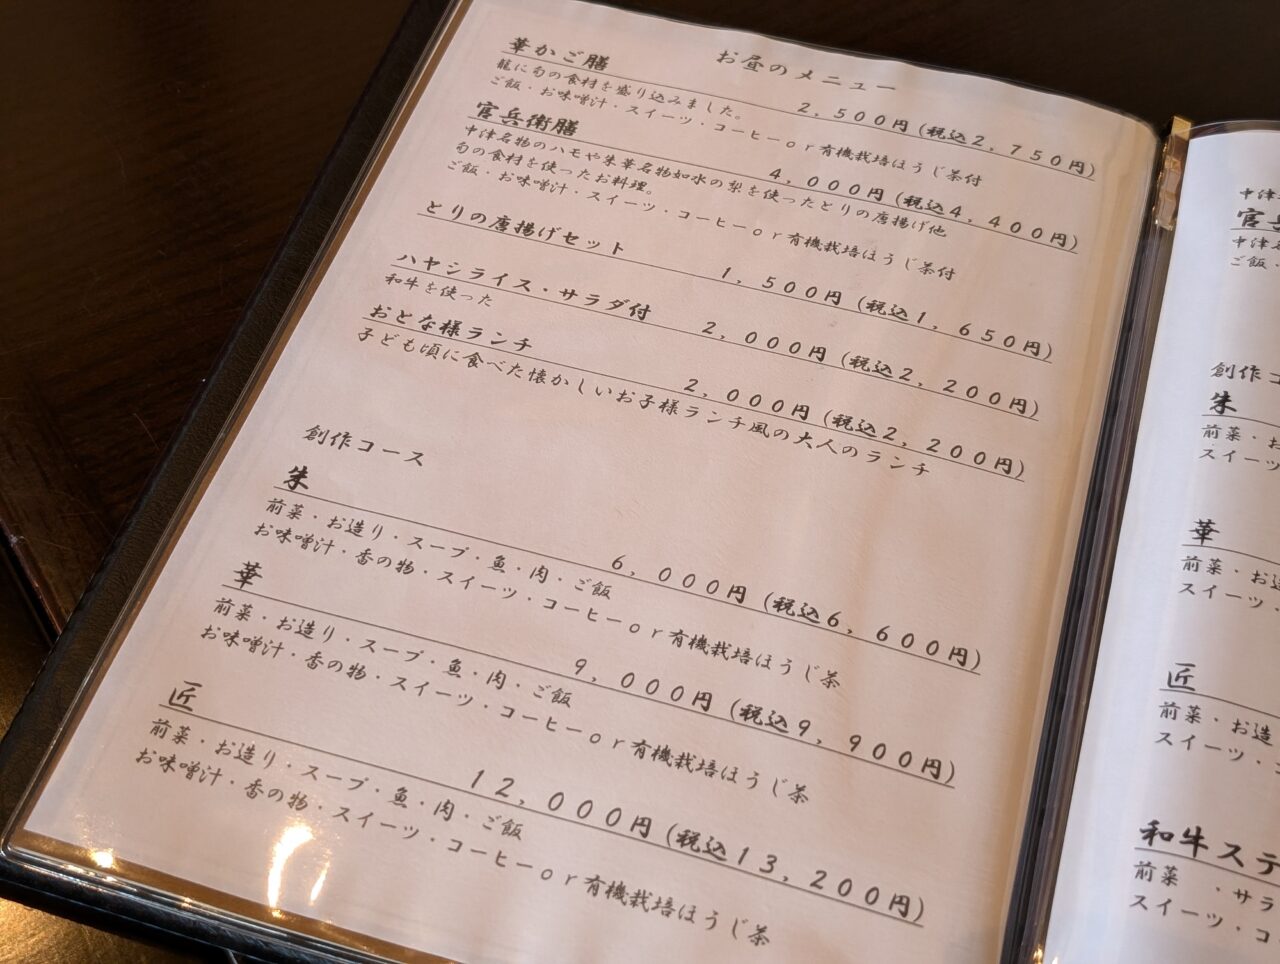 お昼のメニュー
華かご膳 2,500円(税込2,750円)
籠に旬の食材を盛り込みました。
ご飯・お味噌汁・スイーツ・コーヒーor有機栽培ほうじ茶付
官兵衛膳 4,000円(税込4,400円)
中津名物のハモや朱華名物如水の梨を使ったとりの唐揚げ他
旬の食材を使ったお料理。
ご飯・お味噌汁・スイーツ・コーヒーor有機栽培ほうじ茶付
とりの唐揚げセット 1,500円(税込1,650円)
ハヤシライス・サラダ付 2,000円(税込2,200円)
和牛を使った
おとな様ランチ 2,000円(税込2,200円)
子ども頃に食べた懐かしいお子様ランチ風の大人のランチ
創作コース
朱 6,000円(税込6,600円)
前菜・お造り・スープ・魚・肉・ご飯
お味噌汁・香の物・スイーツ・コーヒーor有機栽培ほうじ茶
華 9,000円(税込9,900円)
前菜・お造り・スープ・魚・肉・ご飯
お味噌汁・香の物・スイーツ・コーヒーor有機栽培ほうじ茶
匠 12,000円(税込13,200円)
前菜・お造り・スープ・魚・肉・ご飯
お味噌汁・香の物・スイーツ・コーヒーor有機栽培ほうじ茶
中津
官
中津
ご飯・
創作
朱
前菜・お
スイーツ
華
前菜・お造
スイーツ・
匠
前菜・お造
スイーツ・
和牛ステ
前菜 ・サラ
スイーツ・コ